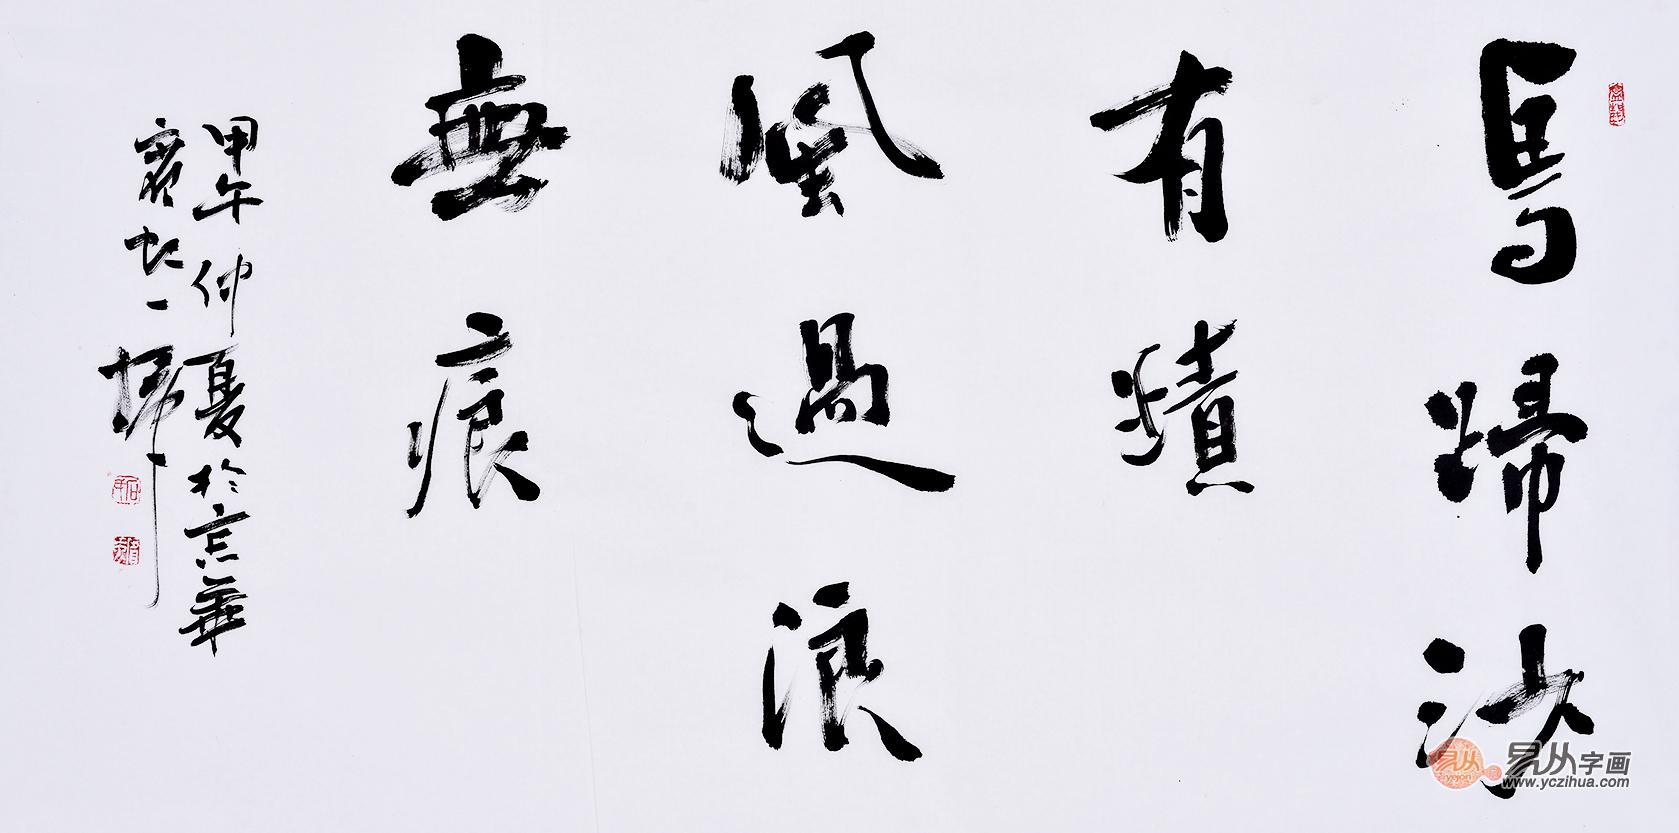 鳥歸沙
有蹟
風過浪
無痕
甲午仲夏於京華
易从字画
www.yczihua.com